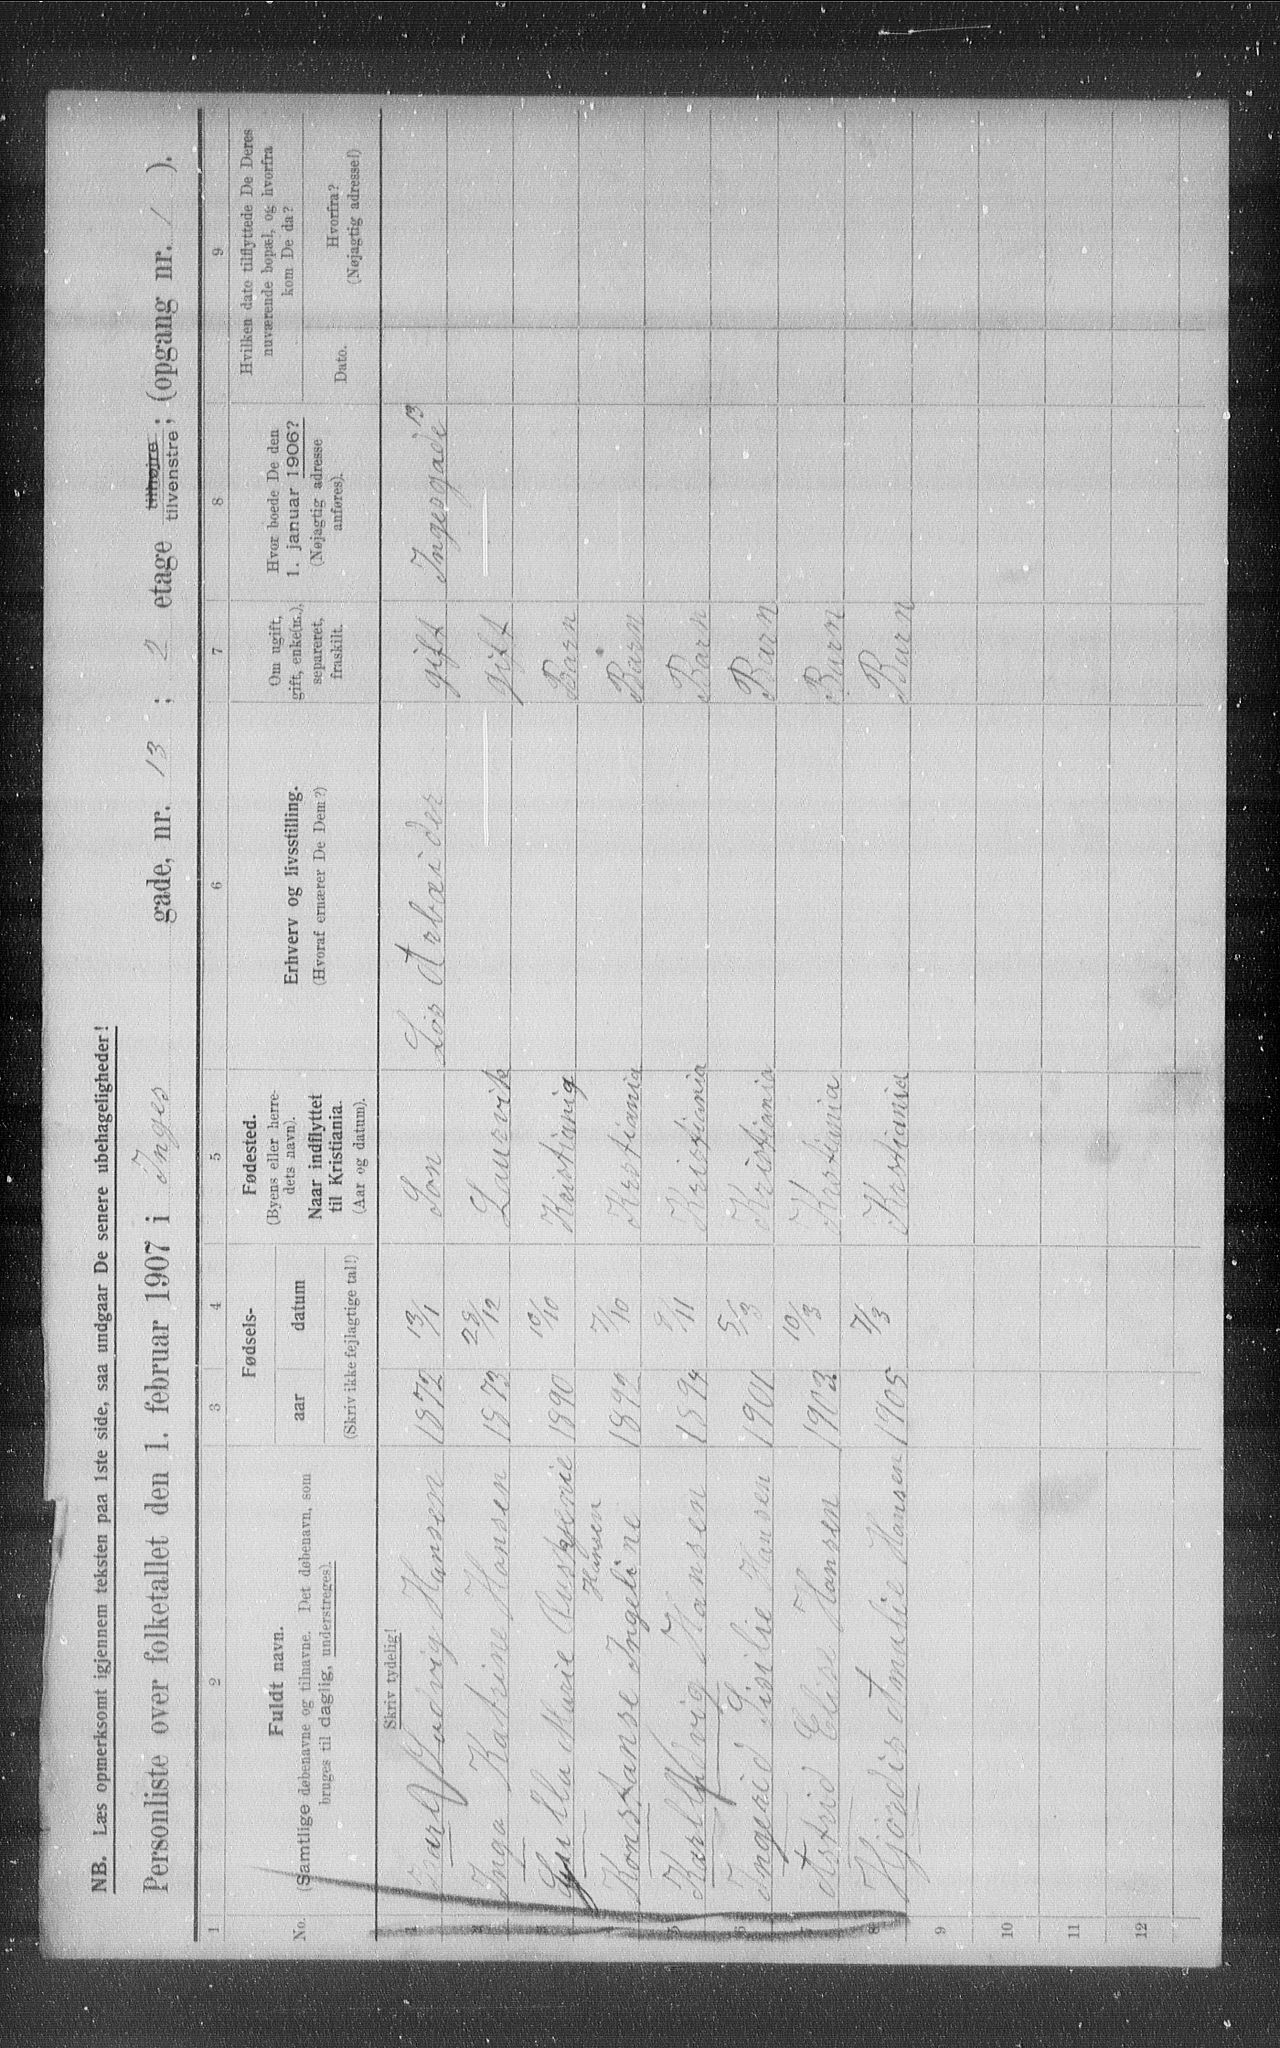 NB. Læs opmerksomt igjennem teksten paa 1ste side, saa undgaar De senere ubehageligheder!
Personliste over folketallet den 1. februar 1907 i Inges gade, nr. 13 ; 2 etage tilhøjre tilvenstre ; (opgang nr. 1 ).
1 2 3 4 5 6 7 8 9
No. Fuldt navn. (Samtlige døbenavne og tilnavne. Det døbenavn, som bruges til daglig, understreges).
Fødsels- aar datum (Skriv ikke fejlagtige tal!)
Fødested. (Byens eller herredets navn). Naar indflyttet til Kristiania. (Aar og datum).
Erhverv og livsstilling. (Hvoraf ernærer De Dem?)
Om ugift, gift, enke(m.), separeret, fraskilt.
Hvor boede De den 1. januar 1906? (Nøjagtig adresse anføres).
Hvilken dato tilflyttede De Deres nuværende bopæl, og hvorfra kom De da?
Dato. Hvorfra? (Nøjagtig adresse!)
Skriv tydelig!
1 Karl Ludvig Hansen 1872 13/1 Son Løs Arbeider gift Ingesgade 13
2 Inga Katrine Hansen 1873 29/12 Laurvik gift
3 Gulla Marie 1890 10/10 Kristiania Barn
4 Konstanse Ingeline Hansen 1892 7/10 Kristiania Barn
5 Karl Ludvig Hansen 1894 9/11 Kristiania Barn
6 Ingerid Sisilie Hansen 1901 5/3 Kristiania Barn
7 Astrid Elise Hansen 1903 10/3 Kristiania Barn
8 Hjördis Amalie Hansen 1905 7/3 Kristiania Barn
9
10
11
12